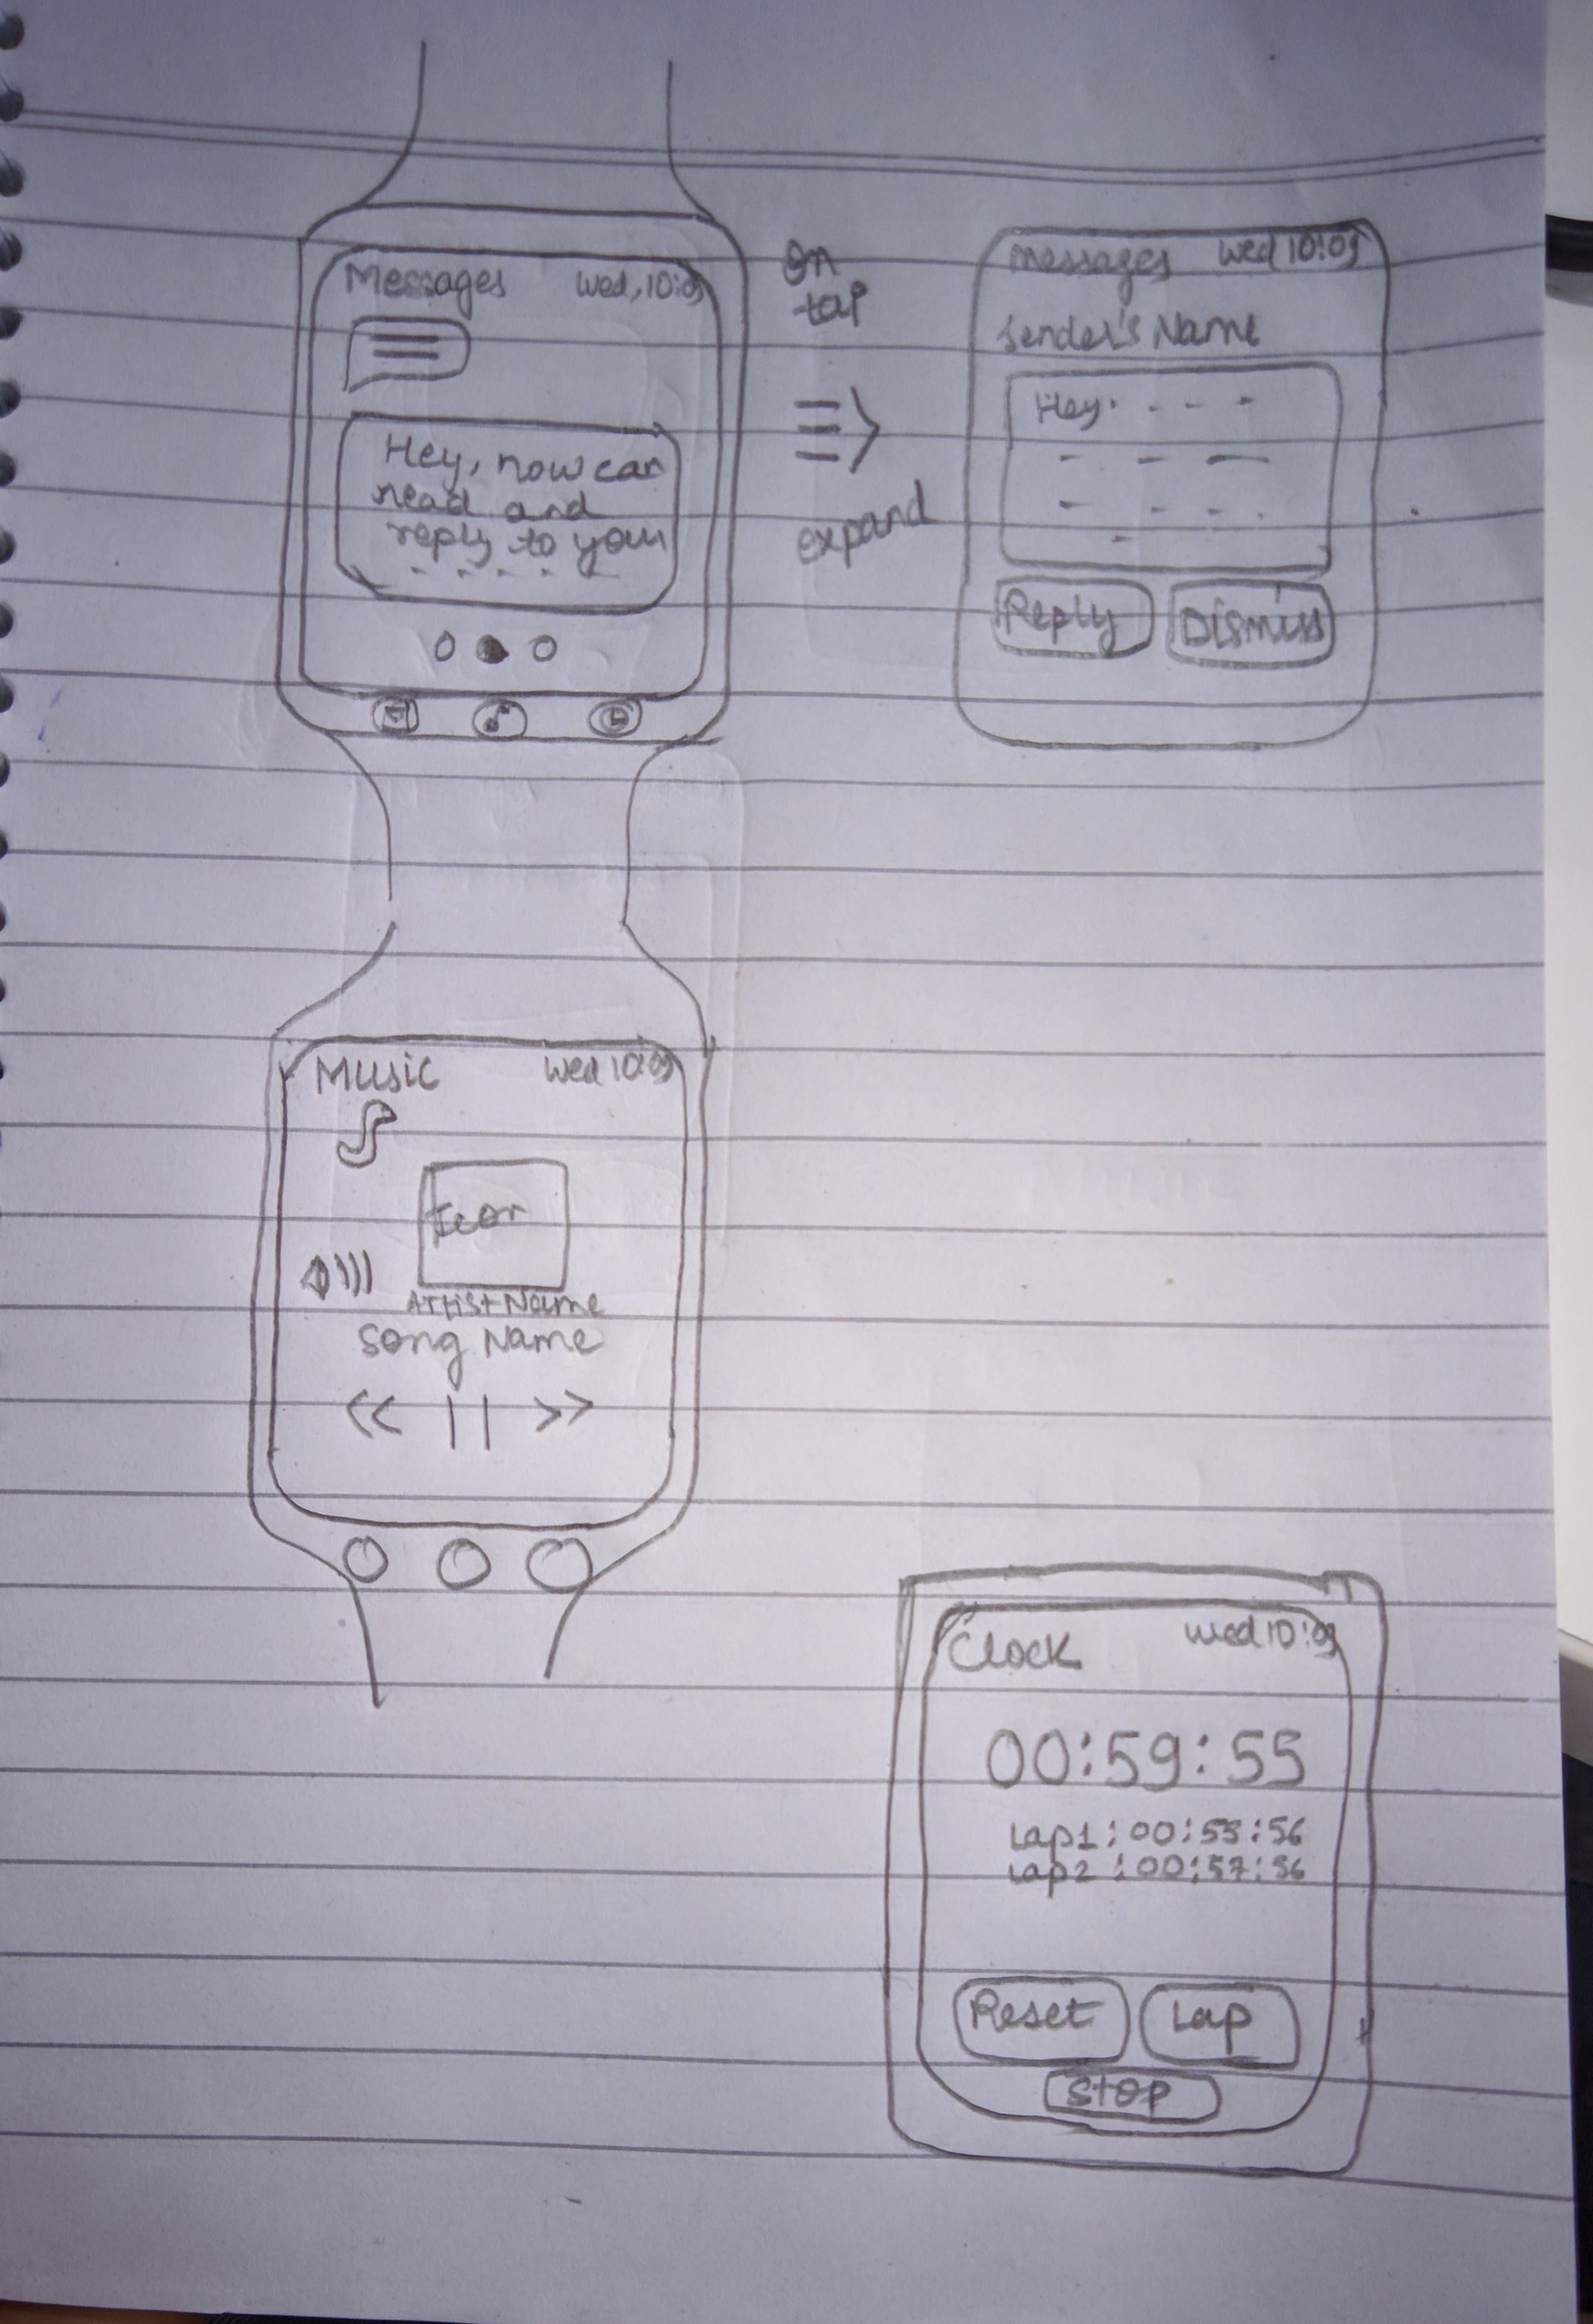 Messages Wed, 10:09
Hey, now can
read and
reply to your
On
tap
expand
Messages Wed 10:09
Sender's Name
Hey.
Reply Dismiss
Music Wed 10:09
Artist Name
Song Name
<< || >>
Clock Wed 10:09
00:59:55
Lap1:00:55:56
Lap2:00:57:56
Reset Lap
Stop